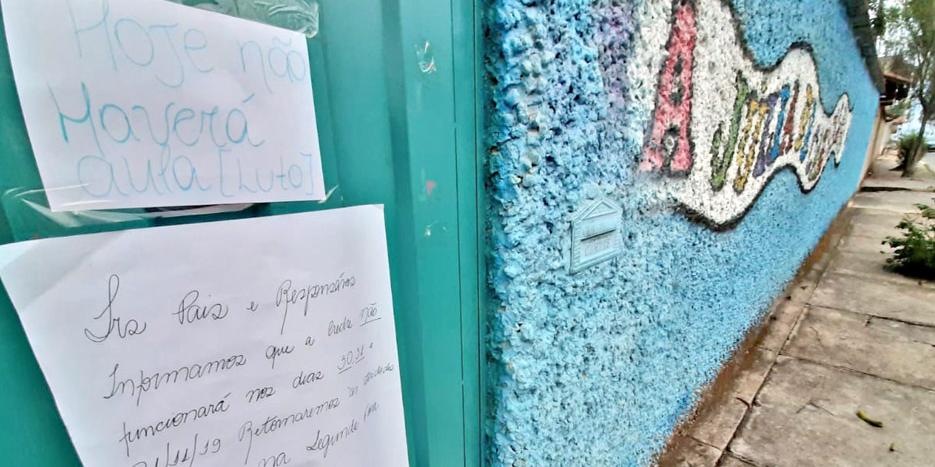 Hoje não
Haverá
aula [Luto]
Srs Pais e Responsáveis
Informamos que a creche não
funcionará nos dias 30,31 e
/11/19 Retornaremos
na Segunda
A